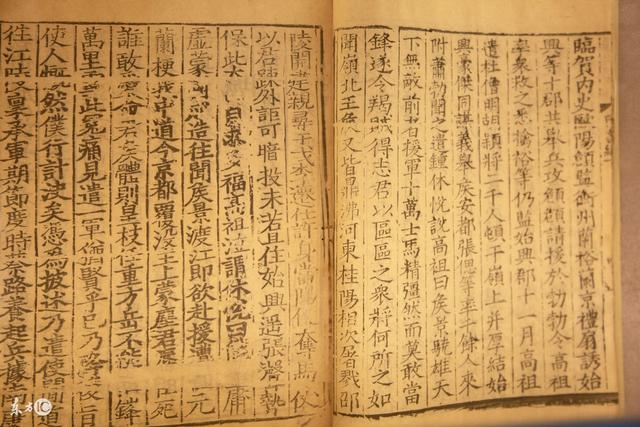 臨賀內史歐陽頠監衡州蘭裕蘭京禮扇誘始
興等十郡共舉兵攻頠頠請援於勃勃令高祖
率衆救之悉擒裕等仍監始興郡十一月高祖
遣杜僧明胡穎將二千人頓于嶺上并厚結始
興豪傑同謀義舉侯安都張偲等率千餘人來
附蕭勃聞之遣鍾休悅說高祖曰侯景驍雄天
下無敵前者援軍十萬士馬精彊然而莫敢當
鋒遂令羯賊得志君以區區之衆將何所之如
聞嶺北王侯又皆鼎沸河東桂陽相次屠戮邵
陵開建親尋干戈李遷仕許身當陽便奪馬仗
以君疎外詎可暗投未若且住始興遙張聲勢
保此太自求多福高祖泣謂休悅曰庸
虛蒙國成造往聞侯景渡江即欲赴援遭元
蘭梗我中道今京都覆沒主上蒙塵君辱臣死
誰敢愛命君侯體則皇枝任重方岳不能摧鋒
萬里雪此冤痛見遣一軍猶賢乎已乃降後旨
使人慨然僕行計決矣憑為披述乃遣使間道
往江陵稟承軍期節度時蔡路養起兵據南
东方IC